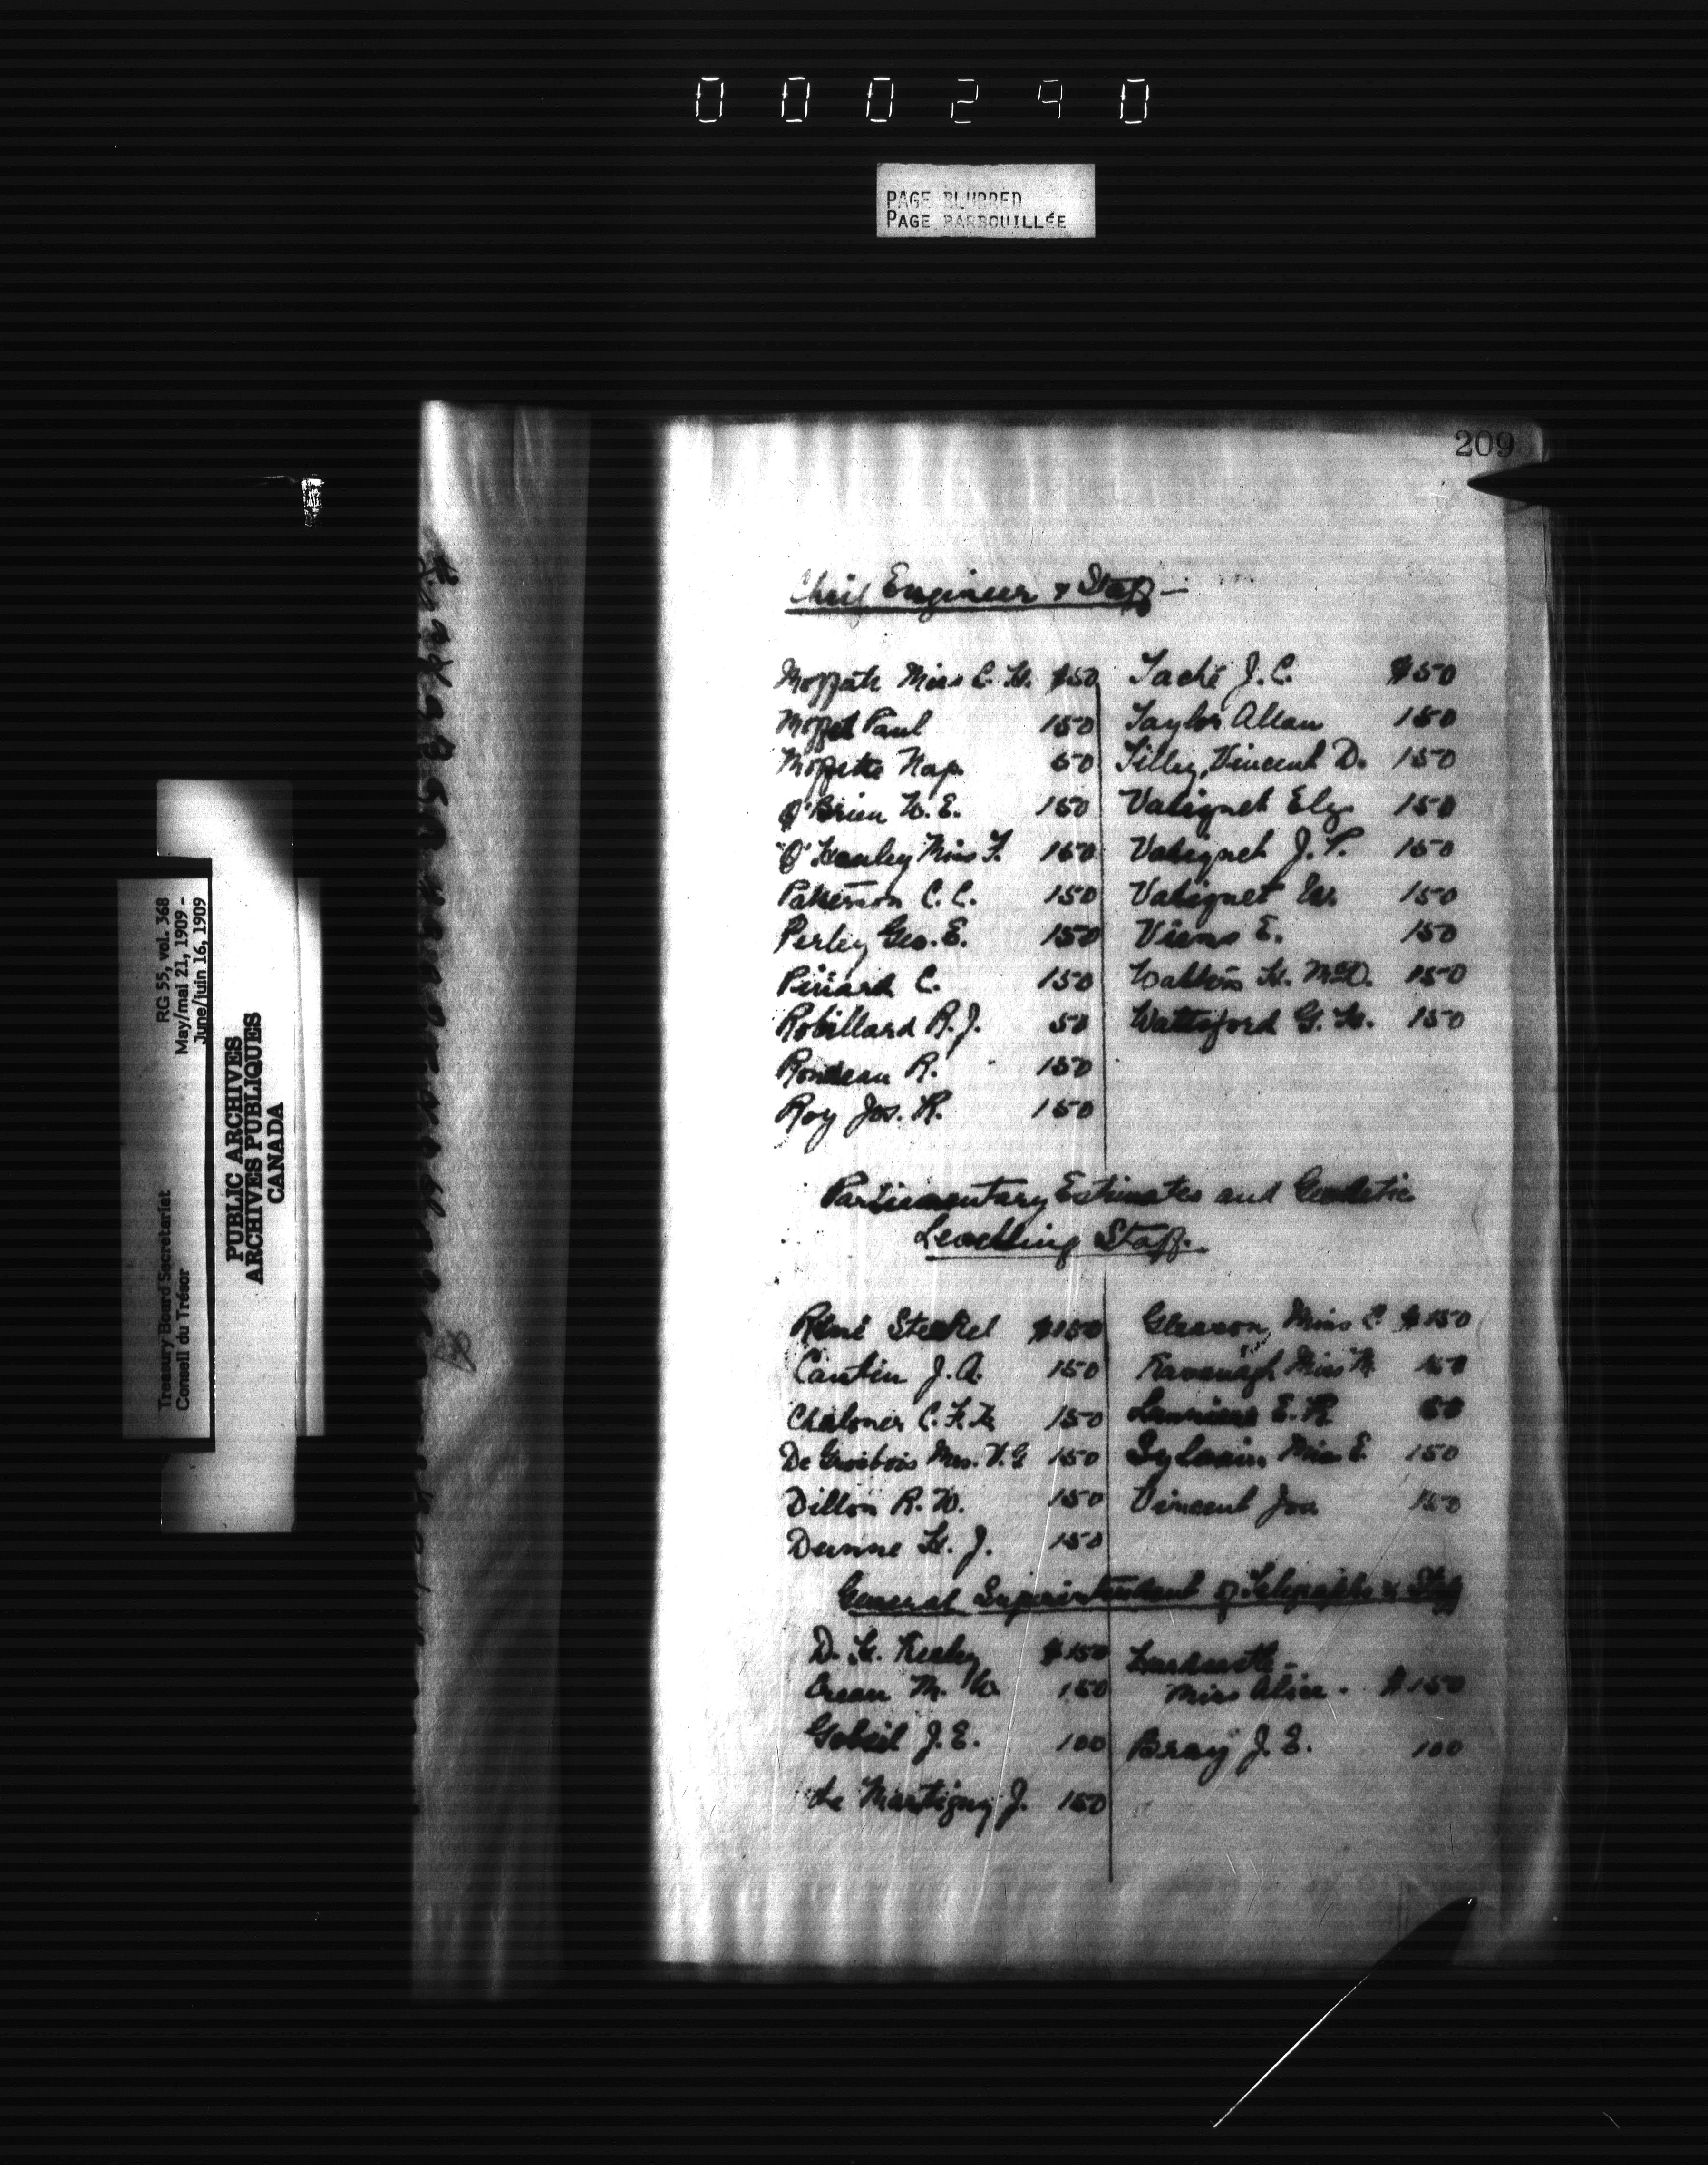 000290
PAGE BLURRED
PAGE BARBOUILLÉE
Treasury Board Secretariat RG 55, vol. 368
Conseil du Trésor May/mai 21, 1909 -
June/juin 16, 1909
PUBLIC ARCHIVES
ARCHIVES PUBLIQUES
CANADA
209
Chief Engineer & Staff —
Moffatt Miss C. H. $50 Taché J. C. $50
Moffet Paul 150 Taylor Allan 150
Moffette Nap. 50 Tilley, Vincent D. 150
O'Brien W. E. 150 Valiquet Elz. 150
O'Hanley Miss F. 150 Valiquet J. P. 150
Patterson C. C. 150 Valiquet W. 150
Perley Geo. E. 150 Viens E. 150
Pinard C. 150 Watters H. McD. 150
Robillard R. J. 50 Wattsford G. H. 150
Rondeau R. 150
Roy Jos. R. 150
Parliamentary Estimates and Geodetic
Levelling Staff.
René Steckel $150 Gleason, Miss C $150
Cantin J. A. 150 Kavanagh Miss M. 150
Chaloner C. F. X. 150 E. R 50
De Grosbois Mrs. V. G 150 Sylvain Miss E. 150
Dillon R. W. 150 Vincent Jos 150
Dunne H. J. 150
General Superintendent of Telegraphs & Staff
D. H. Keeley $150
Crean M. W. 150 Miss Alice. $150
Gobeil J. E. 100 Bray J. E. 100
Le Martigny J. 150